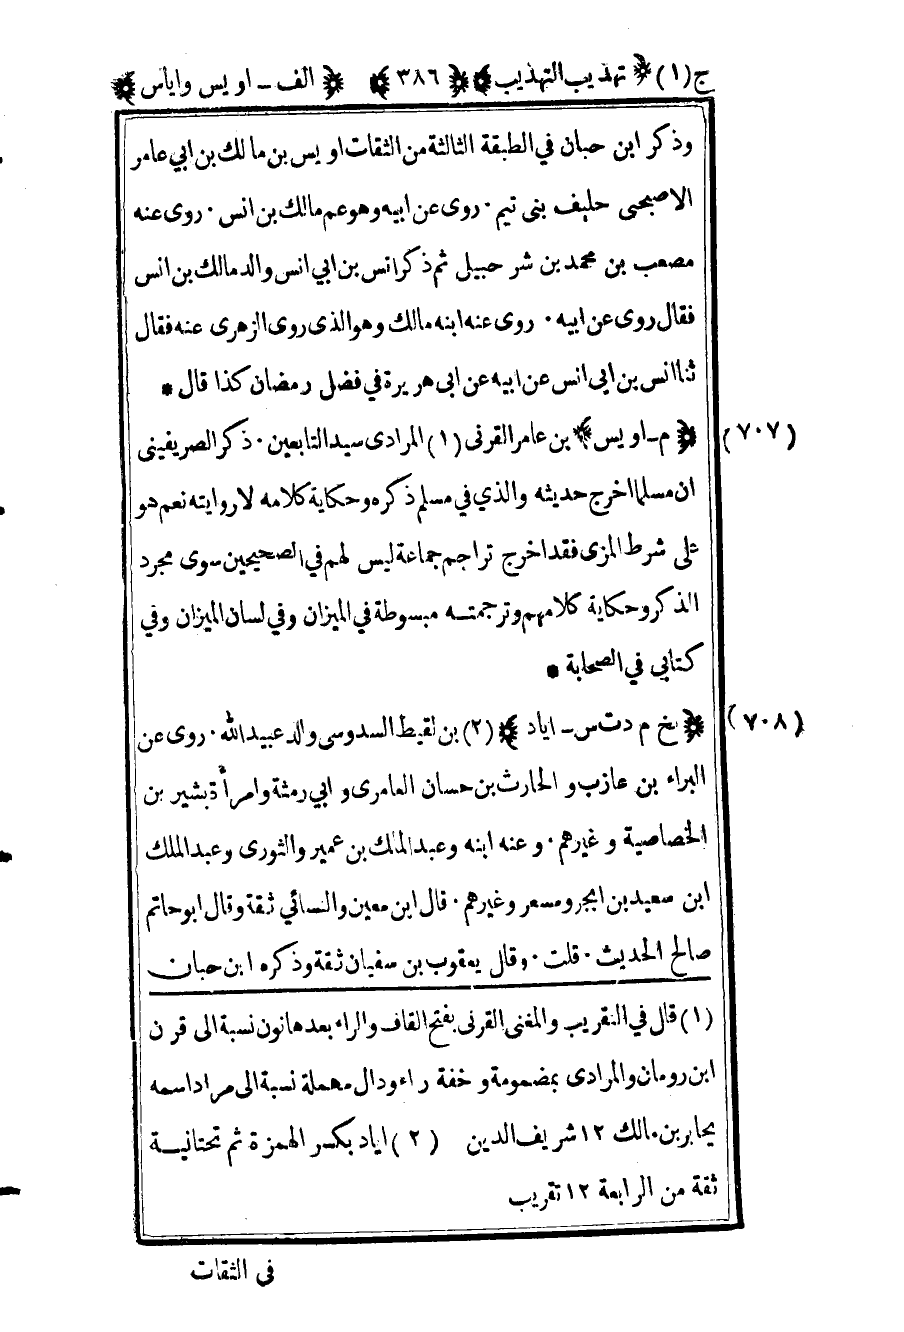 ج(١) ﴿تهذيب التهذيب﴾ ﴿٣٨٦﴾ ﴿الف ـ اويس واياس﴾
وذكر ابن حبان في الطبقة الثالثة من الثقات اويس بن مالك بن ابي عامر
الاصبحى حليف بنى تيم ٠ روى عن ابيه وهو عم مالك بن انس ٠ روى عنه
مصعب بن محمد بن شرحبيل ثم ذكر انس بن ابي انس والد مالك بن انس
فقال روى عن ابيه ٠ روى عنه ابنه مالك وهو الذى روى الزهرى عنه فقال
ثنا انس بن ابى انس عن ابيه عن ابى هريرة في فضل رمضان كذا قال *
(٧٠٧) ﴿م ـ اويس﴾ بن عامر القرنى (١) المرادى سيد التابعين ٠ ذكر الصريفينى
ان مسلما اخرج حديثه والذي في مسلم ذكره وحكاية كلامه لا روايته نعم هو
على شرط المزى فقد اخرج تراجم جماعة ليس لهم في الصحيحين سوى مجرد
الذكر وحكاية كلامهم وترجمته مبسوطة في الميزان وفي لسان الميزان وفي
كتابي في الصحابة *
(٧٠٨) ﴿بخ م د ت س ـ اياد﴾ (٢) بن لقيط السدوسى والد عبيد الله ٠ روى عن
البراء بن عازب و الحارث بن حسان العامرى و ابي رمثة وامرأة بشير بن
الخصاصية و غيرهم ٠ و عنه ابنه وعبد الملك بن عمير والثورى وعبد الملك
ابن سعيد بن ابجر ومسعر وغيرهم ٠ قال ابن معين والنسائي ثقة وقال ابو حاتم
صالح الحديث ٠ قلت ٠ وقال يعقوب بن سفيان ثقة وذكره ابن حبان
(١) قال في التقريب والمغنى القرنى بفتح القاف والراء بعدها نون نسبة الى قرن
ابن رومان والمرادى بمضمومة و خفة راء ودال مهملة نسبة الى مراد اسمه
يحابر بن مالك ١٢ شريف الدين (٢) اياد بكسر الهمزة ثم تحتانية
ثقة من الرابعة ١٢ تقريب
في الثقات